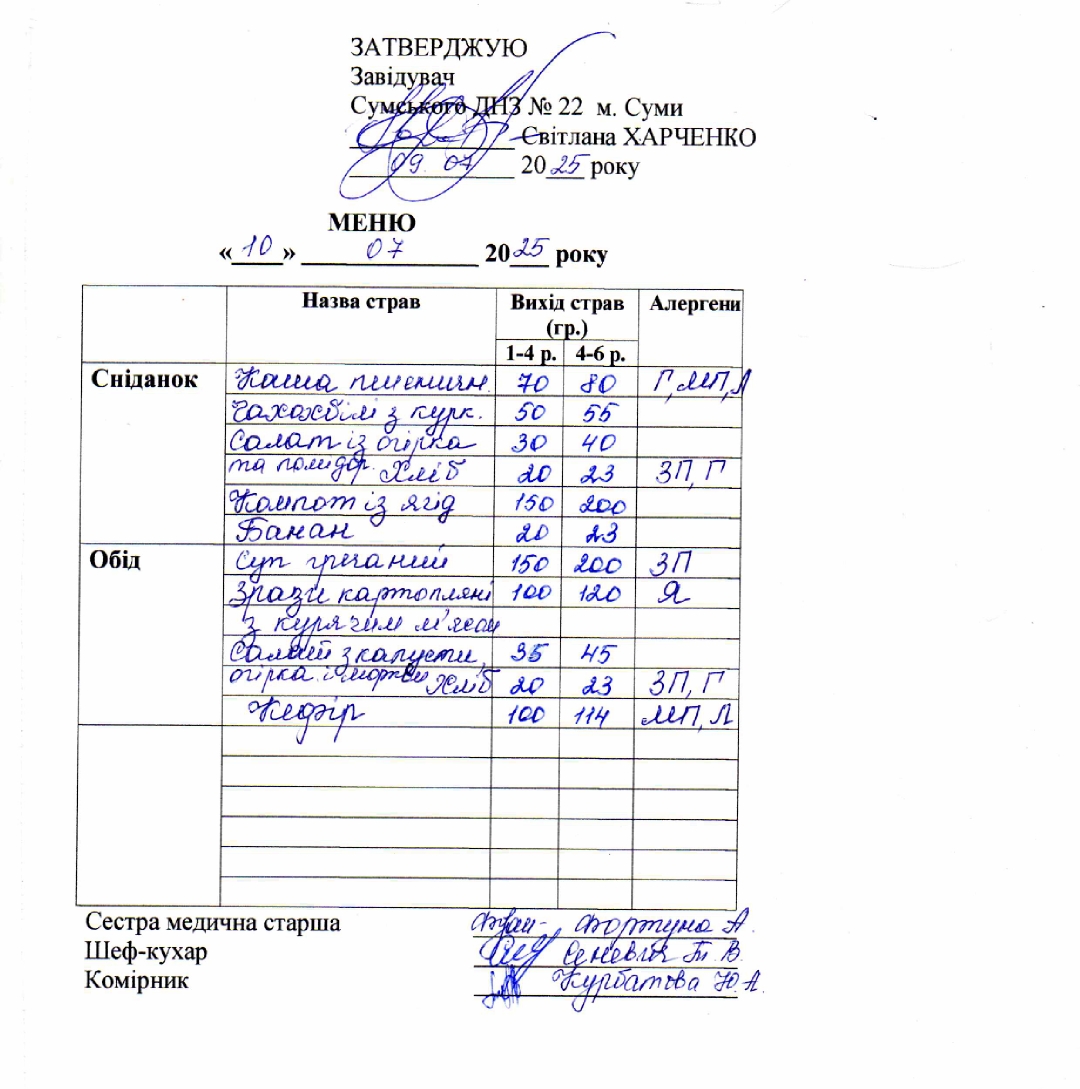 ЗАТВЕРДЖУЮ
Завідувач
Сумського ДНЗ № 22 м. Суми
Світлана ХАРЧЕНКО
09. 07 2025 року
МЕНЮ
«10» 07 2025 року
Назва страв Вихід страв (гр.) Алергени
1-4 р. 4-6 р.
Сніданок Каша пшеничн. 70 80 Г, МП, Л
Чахохбілі з курк. 50 55
Салат із огірка 30 40
та помідор. Хліб 20 23 ЗП, Г
Компот із ягід 150 200
Банан 20 23
Обід Суп гречаний 150 200 ЗП
Зрази картопляні 100 120 Я
з курячим м'ясом
Салат з капусти, 35 45
огірка і моркви Хліб 20 23 ЗП, Г
Кефір 100 114 МП, Л
Сестра медична старша Фортуна А.
Шеф-кухар Т. В.
Комірник Курбатова Ю. А.